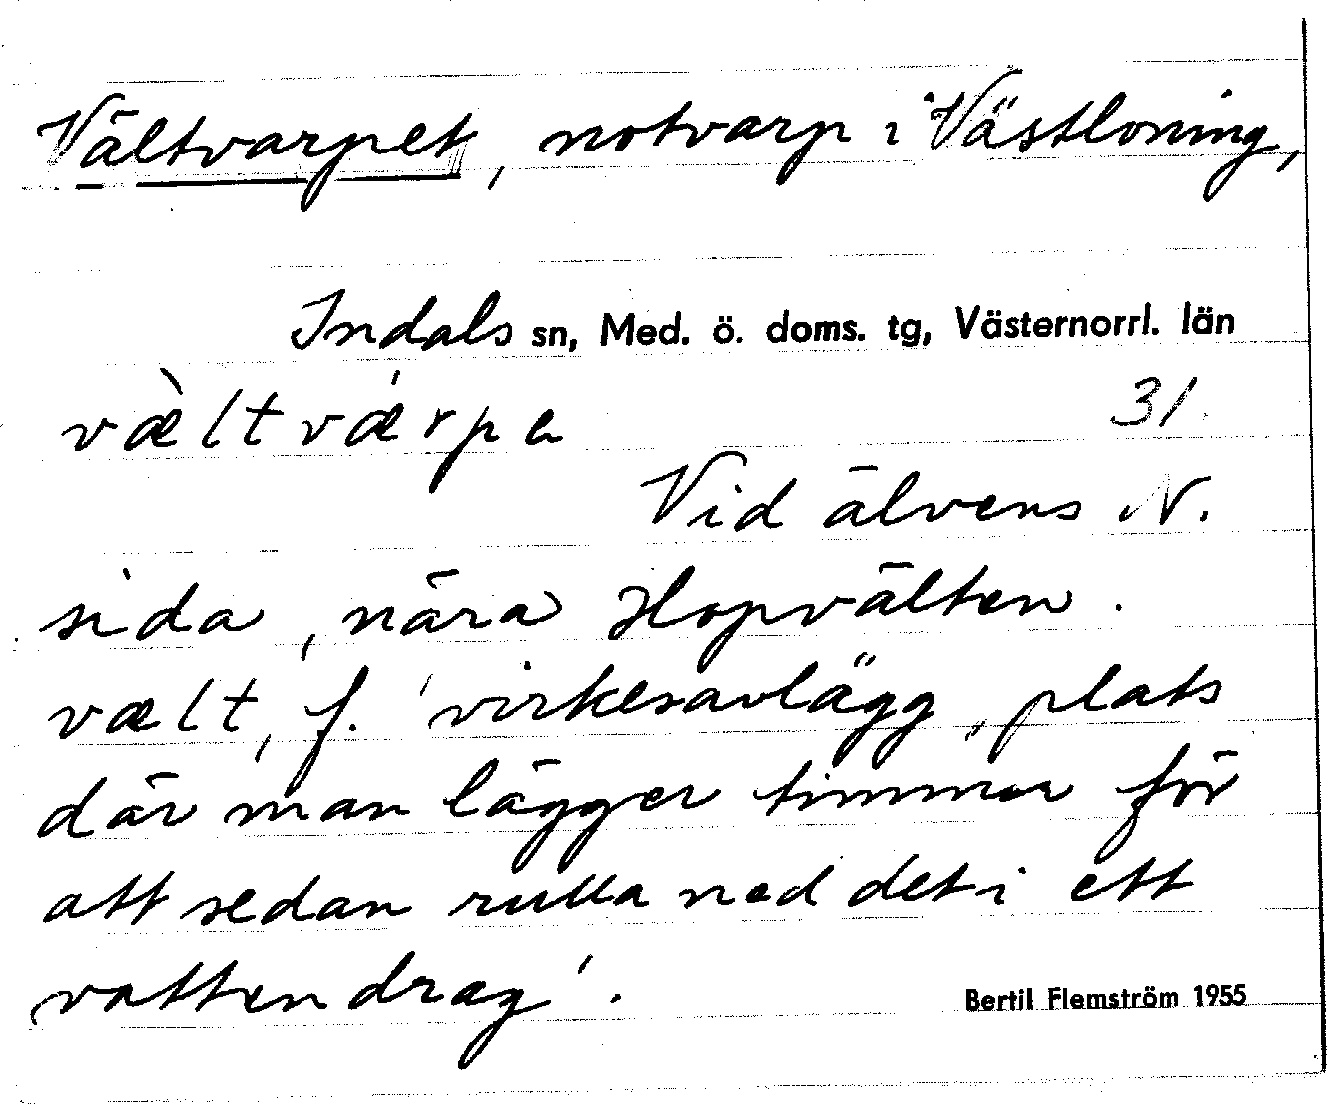 Vältvarpet, notvarp i Västloning,
Indals sn, Med. ö. doms. tg, Västernorrl. län
væ̀ltvǽrpa 31
Vid älvens N.
sida, nära Hopvälten.
vælt, f. 'virkesavlägg, plats
där man lägger timmer för
att sedan rulla ned det i ett
vattendrag'.
Bertil Flemström 1955